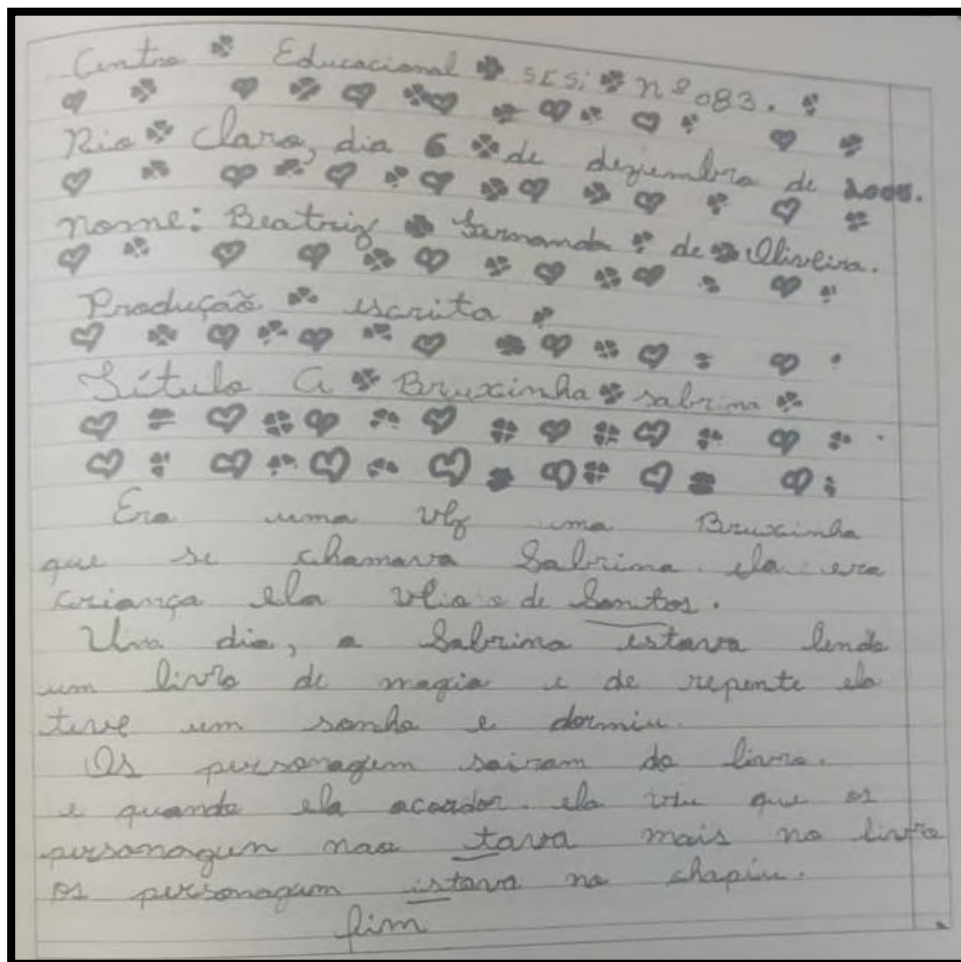 Centro Educacional SESi nº 083.
Rio Claro, dia 6 de dezembro de 2005.
Nome: Beatriz Fernanda de Oliveira.
Produção escrita
Título A Bruxinha sabrina
Era uma vez uma Bruxinha
que se chamava Sabrina. ela era
criança ela veio de Santos.
Um dia, a Sabrina estava lendo
um livro de magia e de repente ela
teve um sonho e dormiu.
Os personagem sairam do livro.
e quando ela acordor. ela viu que os
personagem nao tava mais no livro
os personagem istava no chapiu.
fim